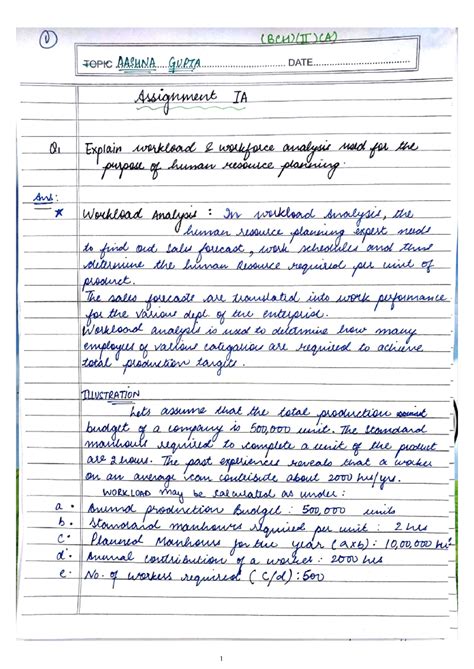 (1)
(BCH)(II)(A)
TOPIC AASHNA GUPTA DATE
Assignment IA
Q1 Explain workload & workforce analysis used for the
purpose of human resource planning.
Ans:
* Workload Analysis : In workload Analysis, the
human resource planning expert needs
to find out sales forecast, work schedules and thus
determine the human Resource required per unit of
product.
The sales forecasts are translated into work performance
for the various dept of the enterprise.
Workload analysis is used to determine how many
employees of various categories are required to achieve
total production targets.
ILLUSTRATION
Lets assume that the total production
budget of a company is 500,000 unit. The standard
manhours required to complete a unit of the product
are 2 hours. The past experiences reveals that a worker
on an average can contribute about 2000 hrs/yrs.
WORKLOAD may be calculated as under:
a. Annual production Budget : 500,000 units
b. Standard manhours required per unit : 2 hrs
c. Planned Manhours for the year (axb) : 10,00,000 hrs
d. Annual contribution of a worker : 2000 hrs
e. No. of workers required (c/d) : 500
1